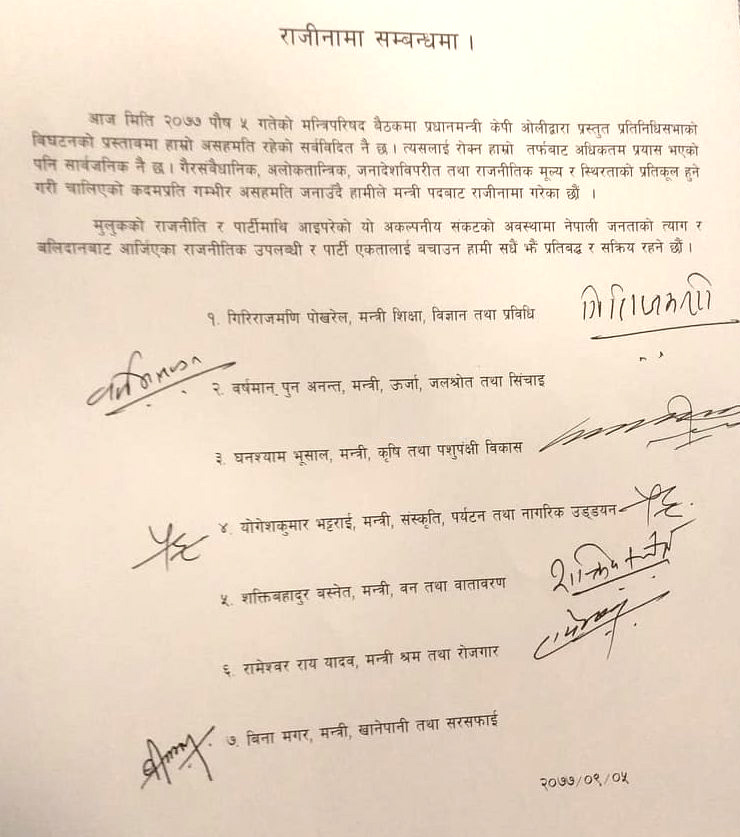 राजीनामा सम्बन्धमा ।
आज मिति २०७७ पौष ५ गतेको मन्त्रिपरिषद बैठकमा प्रधानमन्त्री केपी ओलीद्वारा प्रस्तुत प्रतिनिधिसभाको
विघटनको प्रस्तावमा हाम्रो असहमति रहेको सर्वविदित नै छ । त्यसलाई रोक्न हाम्रो तर्फबाट अधिकतम प्रयास भएको
पनि सार्वजनिक नै छ । गैरसंवैधानिक, अलोकतान्त्रिक, जनादेशविपरीत तथा राजनीतिक मूल्य र स्थिरताको प्रतिकूल हुने
गरी चालिएको कदमप्रति गम्भीर असहमति जनाउँदै हामीले मन्त्री पदबाट राजीनामा गरेका छौं ।
मुलुकको राजनीति र पार्टीमाथि आइपरेको यो अकल्पनीय संकटको अवस्थामा नेपाली जनताको त्याग र
बलिदानबाट आर्जिएका राजनीतिक उपलब्धी र पार्टी एकतालाई बचाउन हामी सधै झैं प्रतिबद्ध र सक्रिय रहने छौं ।
१. गिरिराजमणि पोखरेल, मन्त्री शिक्षा, विज्ञान तथा प्रविधि
२. वर्षमान पुन अनन्त, मन्त्री, ऊर्जा, जलश्रोत तथा सिंचाइ
३. घनश्याम भूसाल, मन्त्री, कृषि तथा पशुपंक्षी विकास
४. योगेशकुमार भट्टराई, मन्त्री, संस्कृति, पर्यटन तथा नागरिक उड्डयन
५. शक्तिबहादुर बस्नेत, मन्त्री, वन तथा वातावरण
६. रामेश्वर राय यादव, मन्त्री श्रम तथा रोजगार
७. बिना मगर, मन्त्री, खानेपानी तथा सरसफाई
२०७७/०९/०५